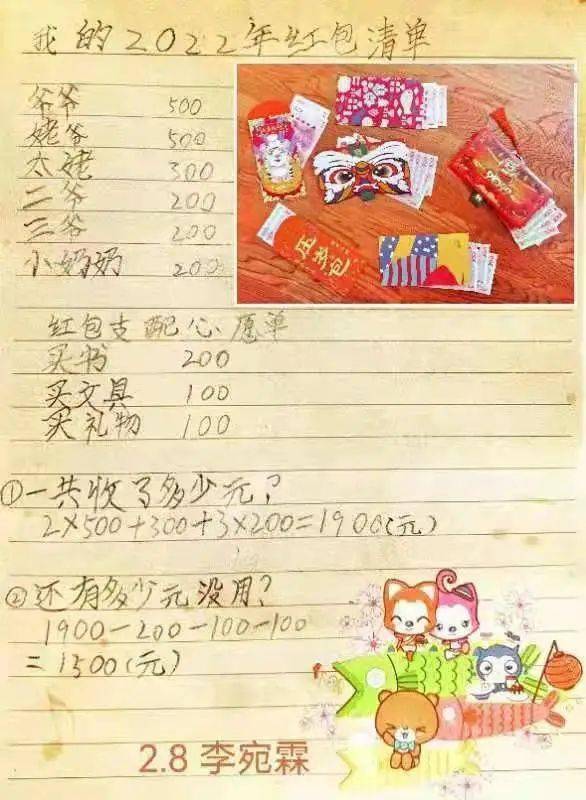 我的2022年红包清单
爷爷 500
姥爷 500
太姥 300
二爷 200
三爷 200
小奶奶 200
压岁包
红包支配心愿单
买书 200
买文具 100
买礼物 100
①一共收了多少元?
2×500+300+3×200=1900(元)
②还有多少元没用?
1900-200-100-100
=1500(元)
2.8 李宛霖